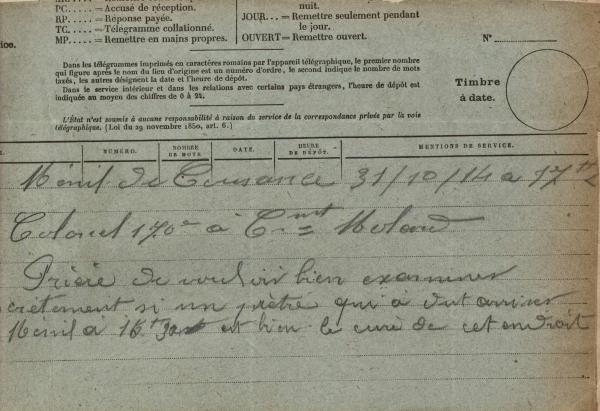 nuit.
PC.... = Accusé de réception.
RP.... = Réponse payée.
TC.... = Télégramme collationné.
MP.... = Remettre en mains propres.
JOUR... = Remettre seulement pendant
le jour.
OUVERT = Remettre ouvert.
N°
Timbre
à date.
Dans les télégrammes imprimés en caractères romains par l'appareil télégraphique, le premier nombre
qui figure après le nom du lieu d'origine est un numéro d'ordre, le second indique le nombre de mots
taxés, les autres désignent la date et l'heure de dépôt.
Dans le service intérieur et dans les relations avec certains pays étrangers, l'heure de dépôt est
indiquée au moyen des chiffres de 0 à 24.
L'État n'est soumis à aucune responsabilité à raison du service de la correspondance privée par la voie
télégraphique. (Loi du 29 novembre 1850, art. 6.)
NUMÉRO.
NOMBRE
DE MOTS
DATE.
HEURE
DE DÉPÔT.
MENTIONS DE SERVICE.
Ménil de Cousance 31/10/14 à 17h
Colonel 170e à Cmt
Prière de vouloir bien examiner
crètement si un prêtre qui a dut arriver
Ménil à 15h est bien le curé de cet endroit